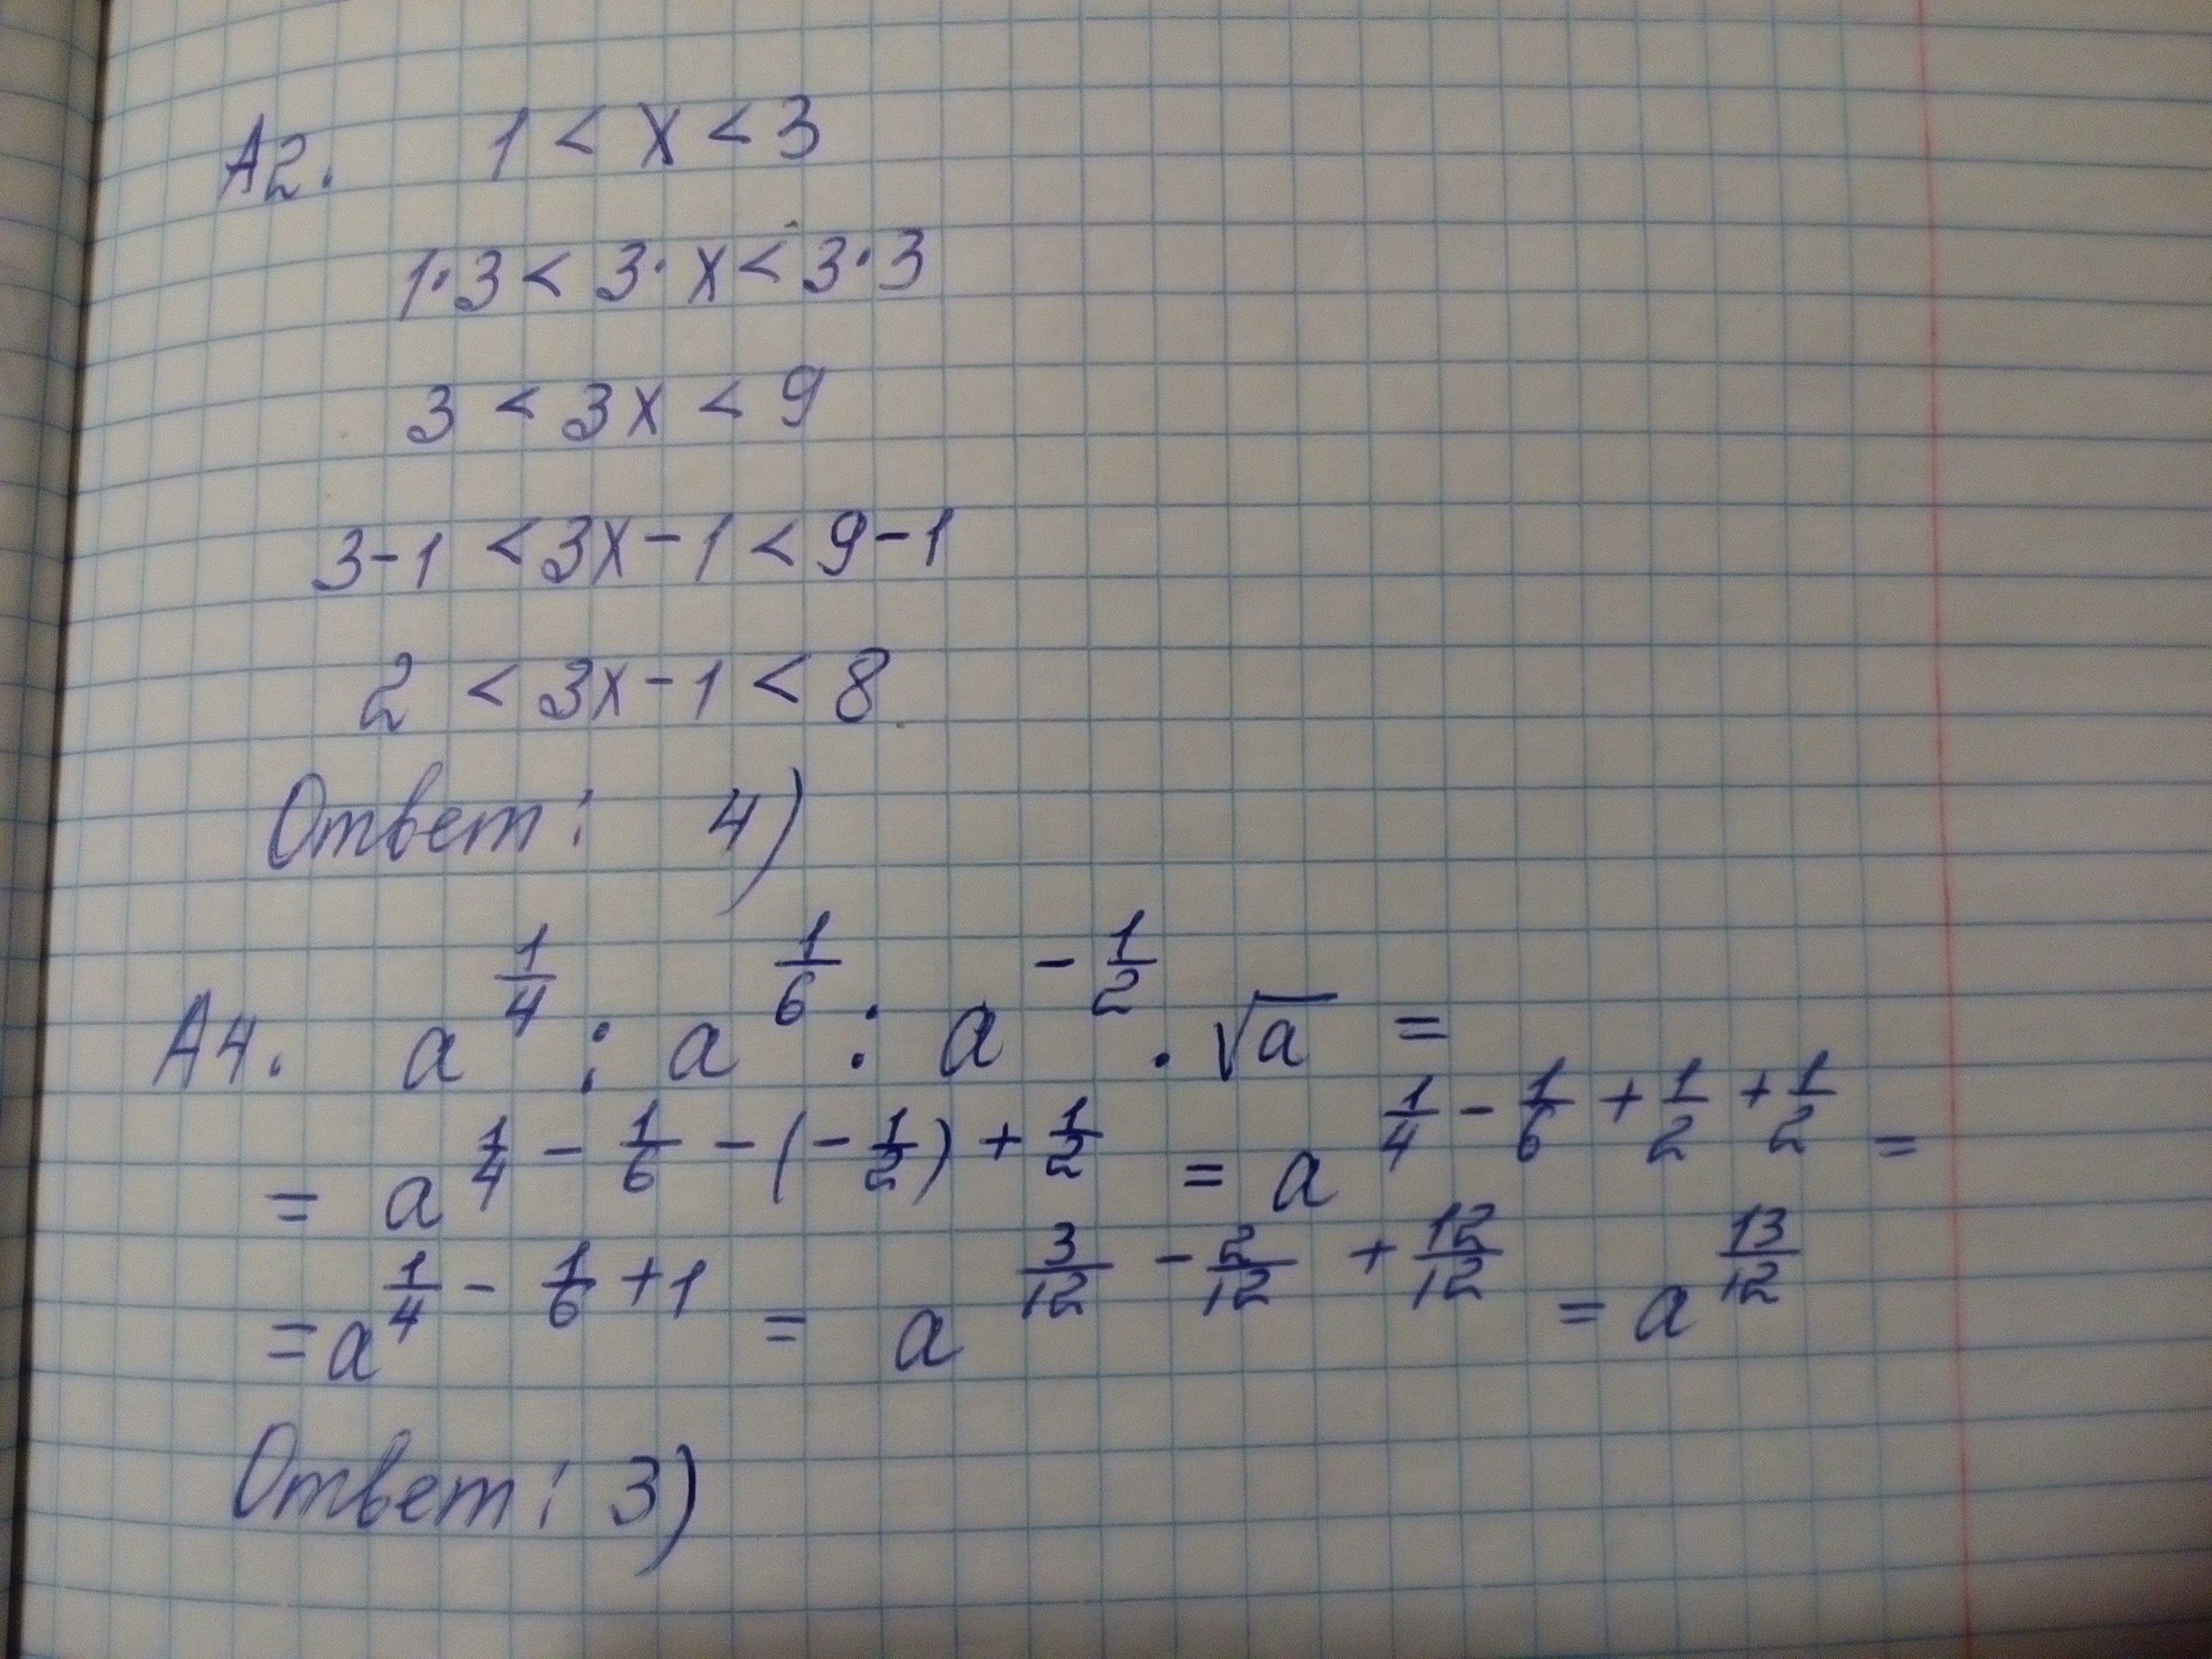 А2. 1 < x < 3
1·3 < 3·x < 3·3
3 < 3x < 9
3-1 < 3x-1 < 9-1
2 < 3x-1 < 8
Ответ: 4)
А4. a^(1/4) : a^(1/6) : a^(-1/2) · √a =
= a^(1/4 - 1/6 - (-1/2) + 1/2) = a^(1/4 - 1/6 + 1/2 + 1/2) =
= a^(1/4 - 1/6 + 1) = a^(3/12 - 2/12 + 12/12) = a^(13/12)
Ответ: 3)